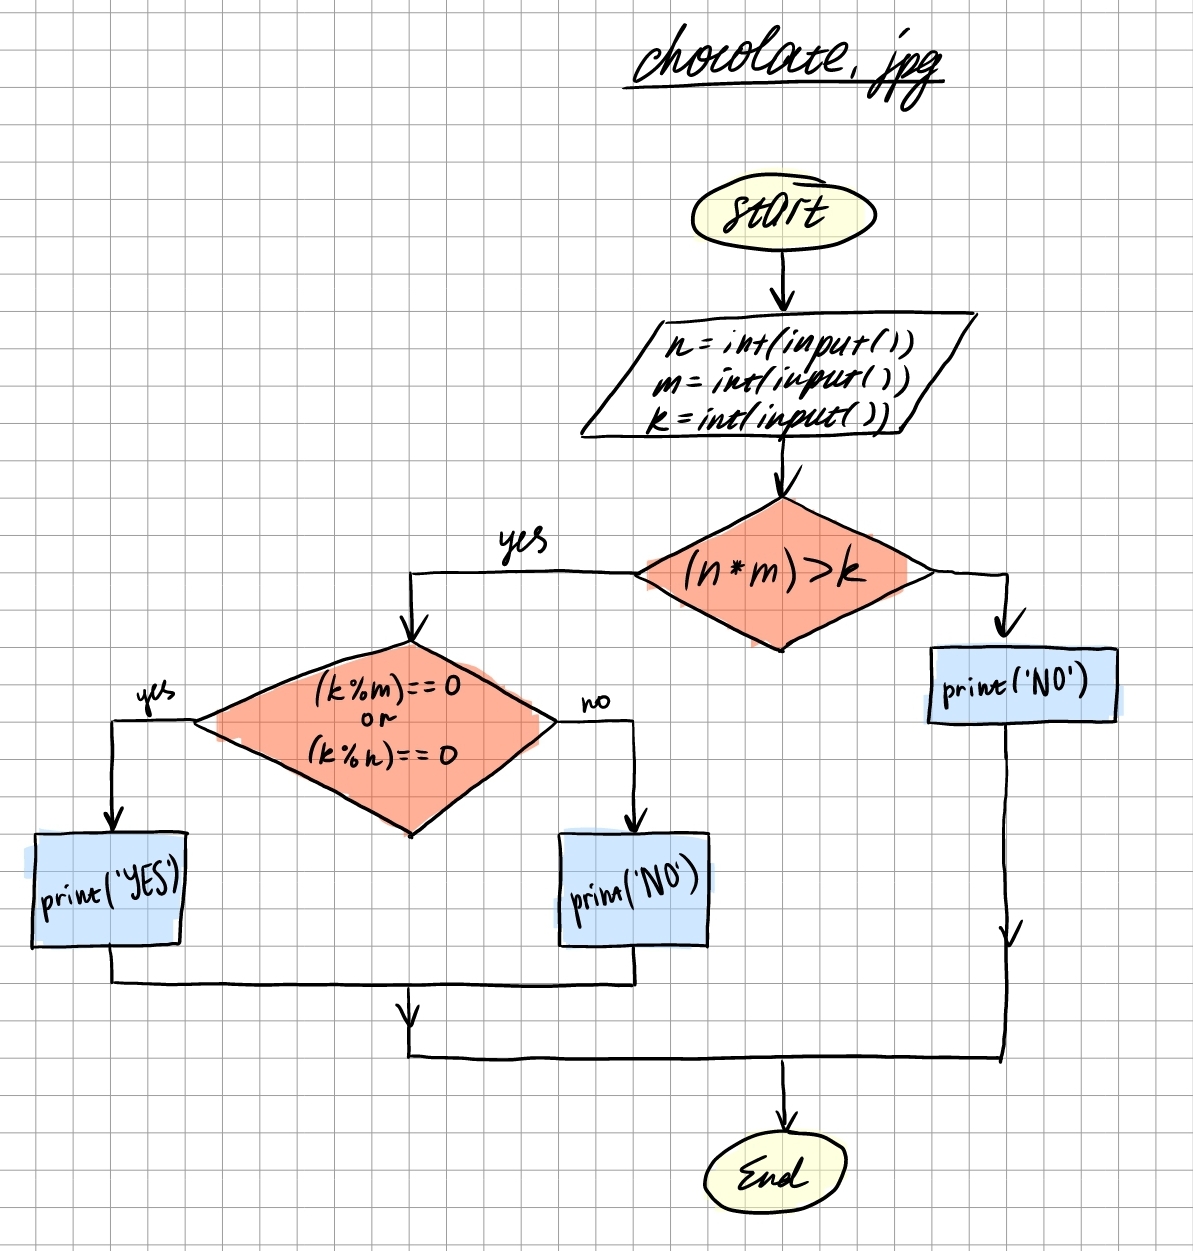 chocolate.jpg
start
n = int(input())
m = int(input())
k = int(input())
(n * m) > k
yes
print('NO')
(k % m) == 0
or
(k % n) == 0
yes
no
print('YES')
print('NO')
End